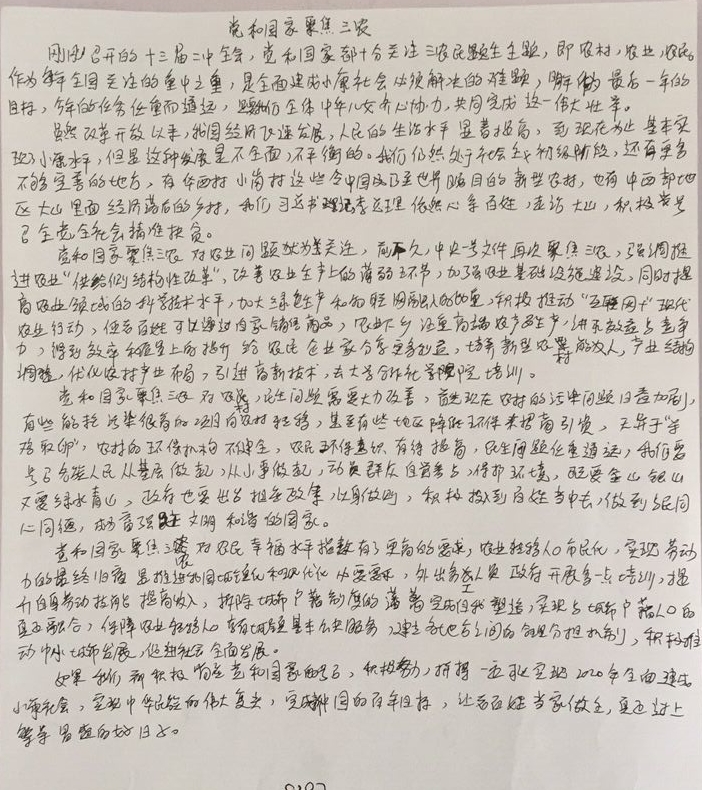 党和国家聚焦三农
刚刚召开的十三届二中全会，党和国家都十分关注三农民题生主题，即农村，农业，农民。
作为全国关注的重中之重，是全面建成小康社会必须解决的难题，最后一年的
目标，今年的任务任重而道远，全体中华儿女齐心协力，共同完成这一伟大壮举。
虽然改革开放以来，我国经济飞速发展，人民的生活水平显著提高，到现在为止基本实
现了小康水平，但是这种发展是不全面，不平衡的。我们仍然处于社会主义初级阶段，还有更多
不够完善的地方，有华西村小岗村这些令中国乃至世界瞩目的新型农村，也有中西部地
区大山里面经济落后的乡村，我们习总书记李总理依然心系百姓，走访大山，积极号
召全党全社会精准扶贫。
党和国家聚焦三农对农业问题关注，前不久，中央一号文件再次聚焦三农，强调推
进农业“供给侧结构性改革”，改善农业生产上的薄弱环节，加强农业基础设施建设，同时提
高农业领域的科学技术水平，加大绿色生产和的力量，积极推动“互联网+”现代
农业行动，使老百姓可以通过自家销售商品，农业下乡注重高端农产品生产，讲究效益与竞争
力，得到效率和质量上的提升给农民企业家分享更多利益，培养新型农村的人，产业结构
调整，优化农村产业布局，引进高新技术，去大学合作社学院培训。
党和国家聚焦三农对农村，民生问题需要大力改善，首先现在农村的污染问题日益加剧，
有些能耗污染很高的项目向农村转移，甚至有些地区降低环保来招商引资，无异于“杀
鸡取卵”，农村的环保机构不健全，农民环保意识有待提高，民生问题任重道远，我们要
号召各族人民从基层做起，从小事做起，动员群众自觉参与，保护环境，既要金山银山
又要绿水青山，政府也要出台相关政策，以身做则，积极投入到百姓当中去，做到与民同
心同德，富强民主文明和谐的国家。
党和国家聚焦三农对农民幸福水平指数有了更高的要求，农业转移人口市民化，实现劳动
力的最终归宿是推进我国城镇化和现代化必要要求，外出务工人员政府开展多一点培训，提
升自身劳动技能提高收入，拆除城市户籍制度的藩篱完成自我塑造，实现与城市户籍人口的
真正融合，保障农业转移人口享有城镇基本公共服务，建立各地方之间的合理分担机制，积极推
动中小城市发展，促进社会全面发展。
如果我们都积极响应党和国家的号召，积极努力，拼搏一定能实现2020年全面建成
小康社会，实现中华民族的伟大复兴，完成中国的百年目标，让老百姓当家做主，真正过上
富足的好日子。